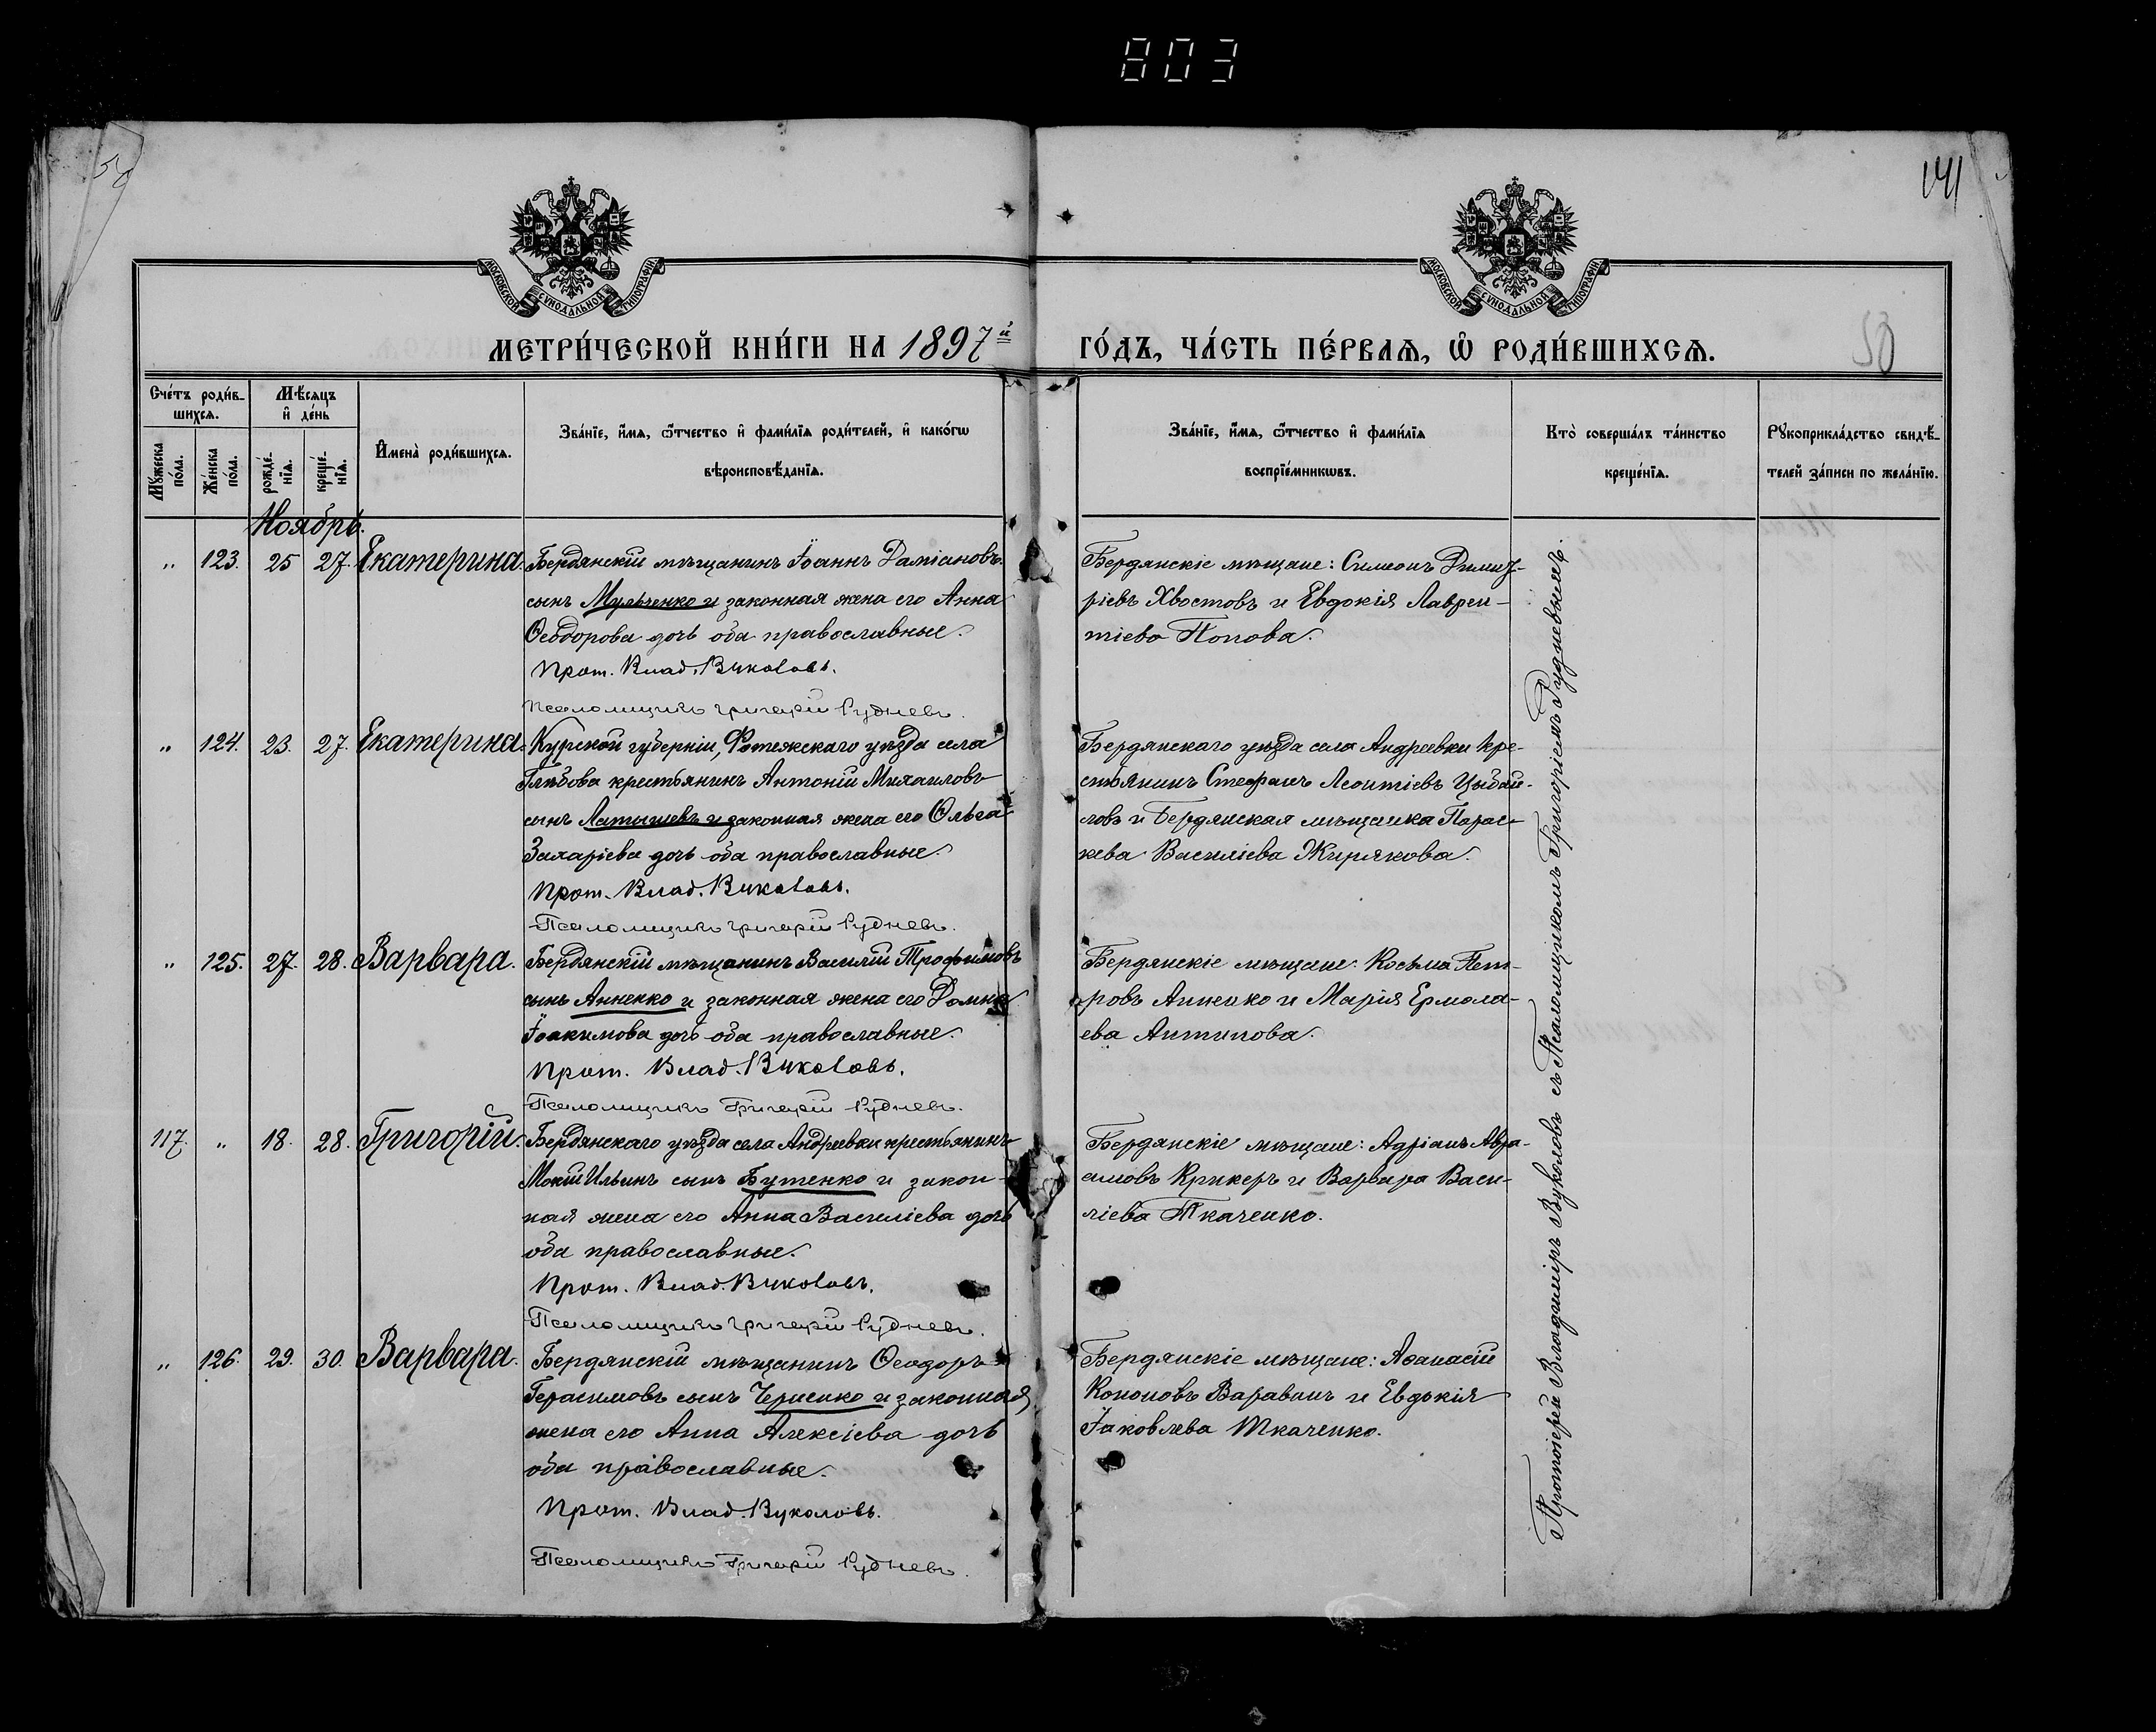 803
141
50
МОСКОВСКОЙ СѴНОДАЛЬНОЙ ТИПОГРАФІИ
МОСКОВСКОЙ СѴНОДАЛЬНОЙ ТИПОГРАФІИ
МЕТРИ́ЧЕСКОЙ КНИ́ГИ НА 1897й
ГО́ДЪ, ЧА́СТЬ ПЕ́РВАѦ, Ѿ РОДИ́ВШИХСѦ.
Сче́тъ роди́в-
шихсѧ.
Мѣ́сѧцъ
и҆ де́нь
Мꙋ́жеска по́ла.
Же́нска по́ла.
рожде́-
нїѧ.
креще́-
нїѧ.
И҆мена̀ роди́вшихсѧ.
Зва́нїе, и҆́мѧ, ѻ҆́тчество и҆ фами́лїѧ роди́телей, и҆ како́гѡ
вѣроисповѣ́данїѧ.
Зва́нїе, и҆́мѧ, ѻ҆́тчество и҆ фами́лїѧ
воспрїе́мникѡвъ.
Кто̀ соверша́лъ та́инство
креще́нїѧ.
Рꙋкоприкла́дство свидѣ́-
телей за́писи по жела́нїю.
Ноябрь.
" 123. 25 27. Екатерина. Бердянскій мѣщанинъ Іоаннъ Даміановъ
сынъ Мульченко и законная жена его Анна
Ѳеодорова дочь оба православные.
Прот. Влад. Вуколовъ.
Псаломщикъ Григорій Рудневъ.
Бердянскіе мѣщане: Симеонъ Димит-
ріевъ Хвостовъ и Евдокія Лаврен-
тіева Попова.
" 124. 23. 27. Екатерина. Курской губерніи, Фатежскаго уѣзда села
Глѣбова крестьянинъ Антоній Михаиловъ
сынъ Латышевъ и законная жена его Ольга
Захаріева дочь оба православные.
Прот. Влад. Вуколовъ.
Псаломщикъ Григорій Рудневъ.
Бердянскаго уѣзда села Андреевки кре-
стьянинъ Стефанъ Леонтіевъ Цыбай-
ловъ и Бердянская мѣщанка Парас-
кева Василіева Жирякова.
" 125. 27. 28. Варвара. Бердянскій мѣщанинъ Василій Трофимовъ
сынъ Анненко и законная жена его Домна
Іоакимова дочь оба православные.
Прот. Влад. Вуколовъ.
Псаломщикъ Григорій Рудневъ.
Бердянскіе мѣщане: Косьма Пет-
ровъ Анненко и Марія Ермола-
ева Антипова.
117. " 18. 28. Григорій. Бердянскаго уѣзда села Андреевки крестьянинъ
Мокій Ильинъ сынъ Бутенко и закон-
ная жена его Анна Василіева дочь
оба православные.
Прот. Влад. Вуколовъ.
Псаломщикъ Григорій Рудневъ.
Бердянскіе мѣщане: Адріанъ Авра-
амовъ Крикеръ и Варвара Васи-
ліева Ткаченко.
" 126. 29. 30. Варвара. Бердянскій мѣщанинъ Ѳеодоръ
Герасимовъ сынъ Черненко и законная
жена его Анна Алексіева дочь
оба православные.
Прот. Влад. Вуколовъ.
Псаломщикъ Григорій Рудневъ.
Бердянскіе мѣщане: Аѳанасій
Кононовъ Вараванъ и Евдокія
Іаковлева Ткаченко.
Протоіерей Владиміръ Вуколовъ съ Псаломщикомъ Григоріемъ Рудневымъ.